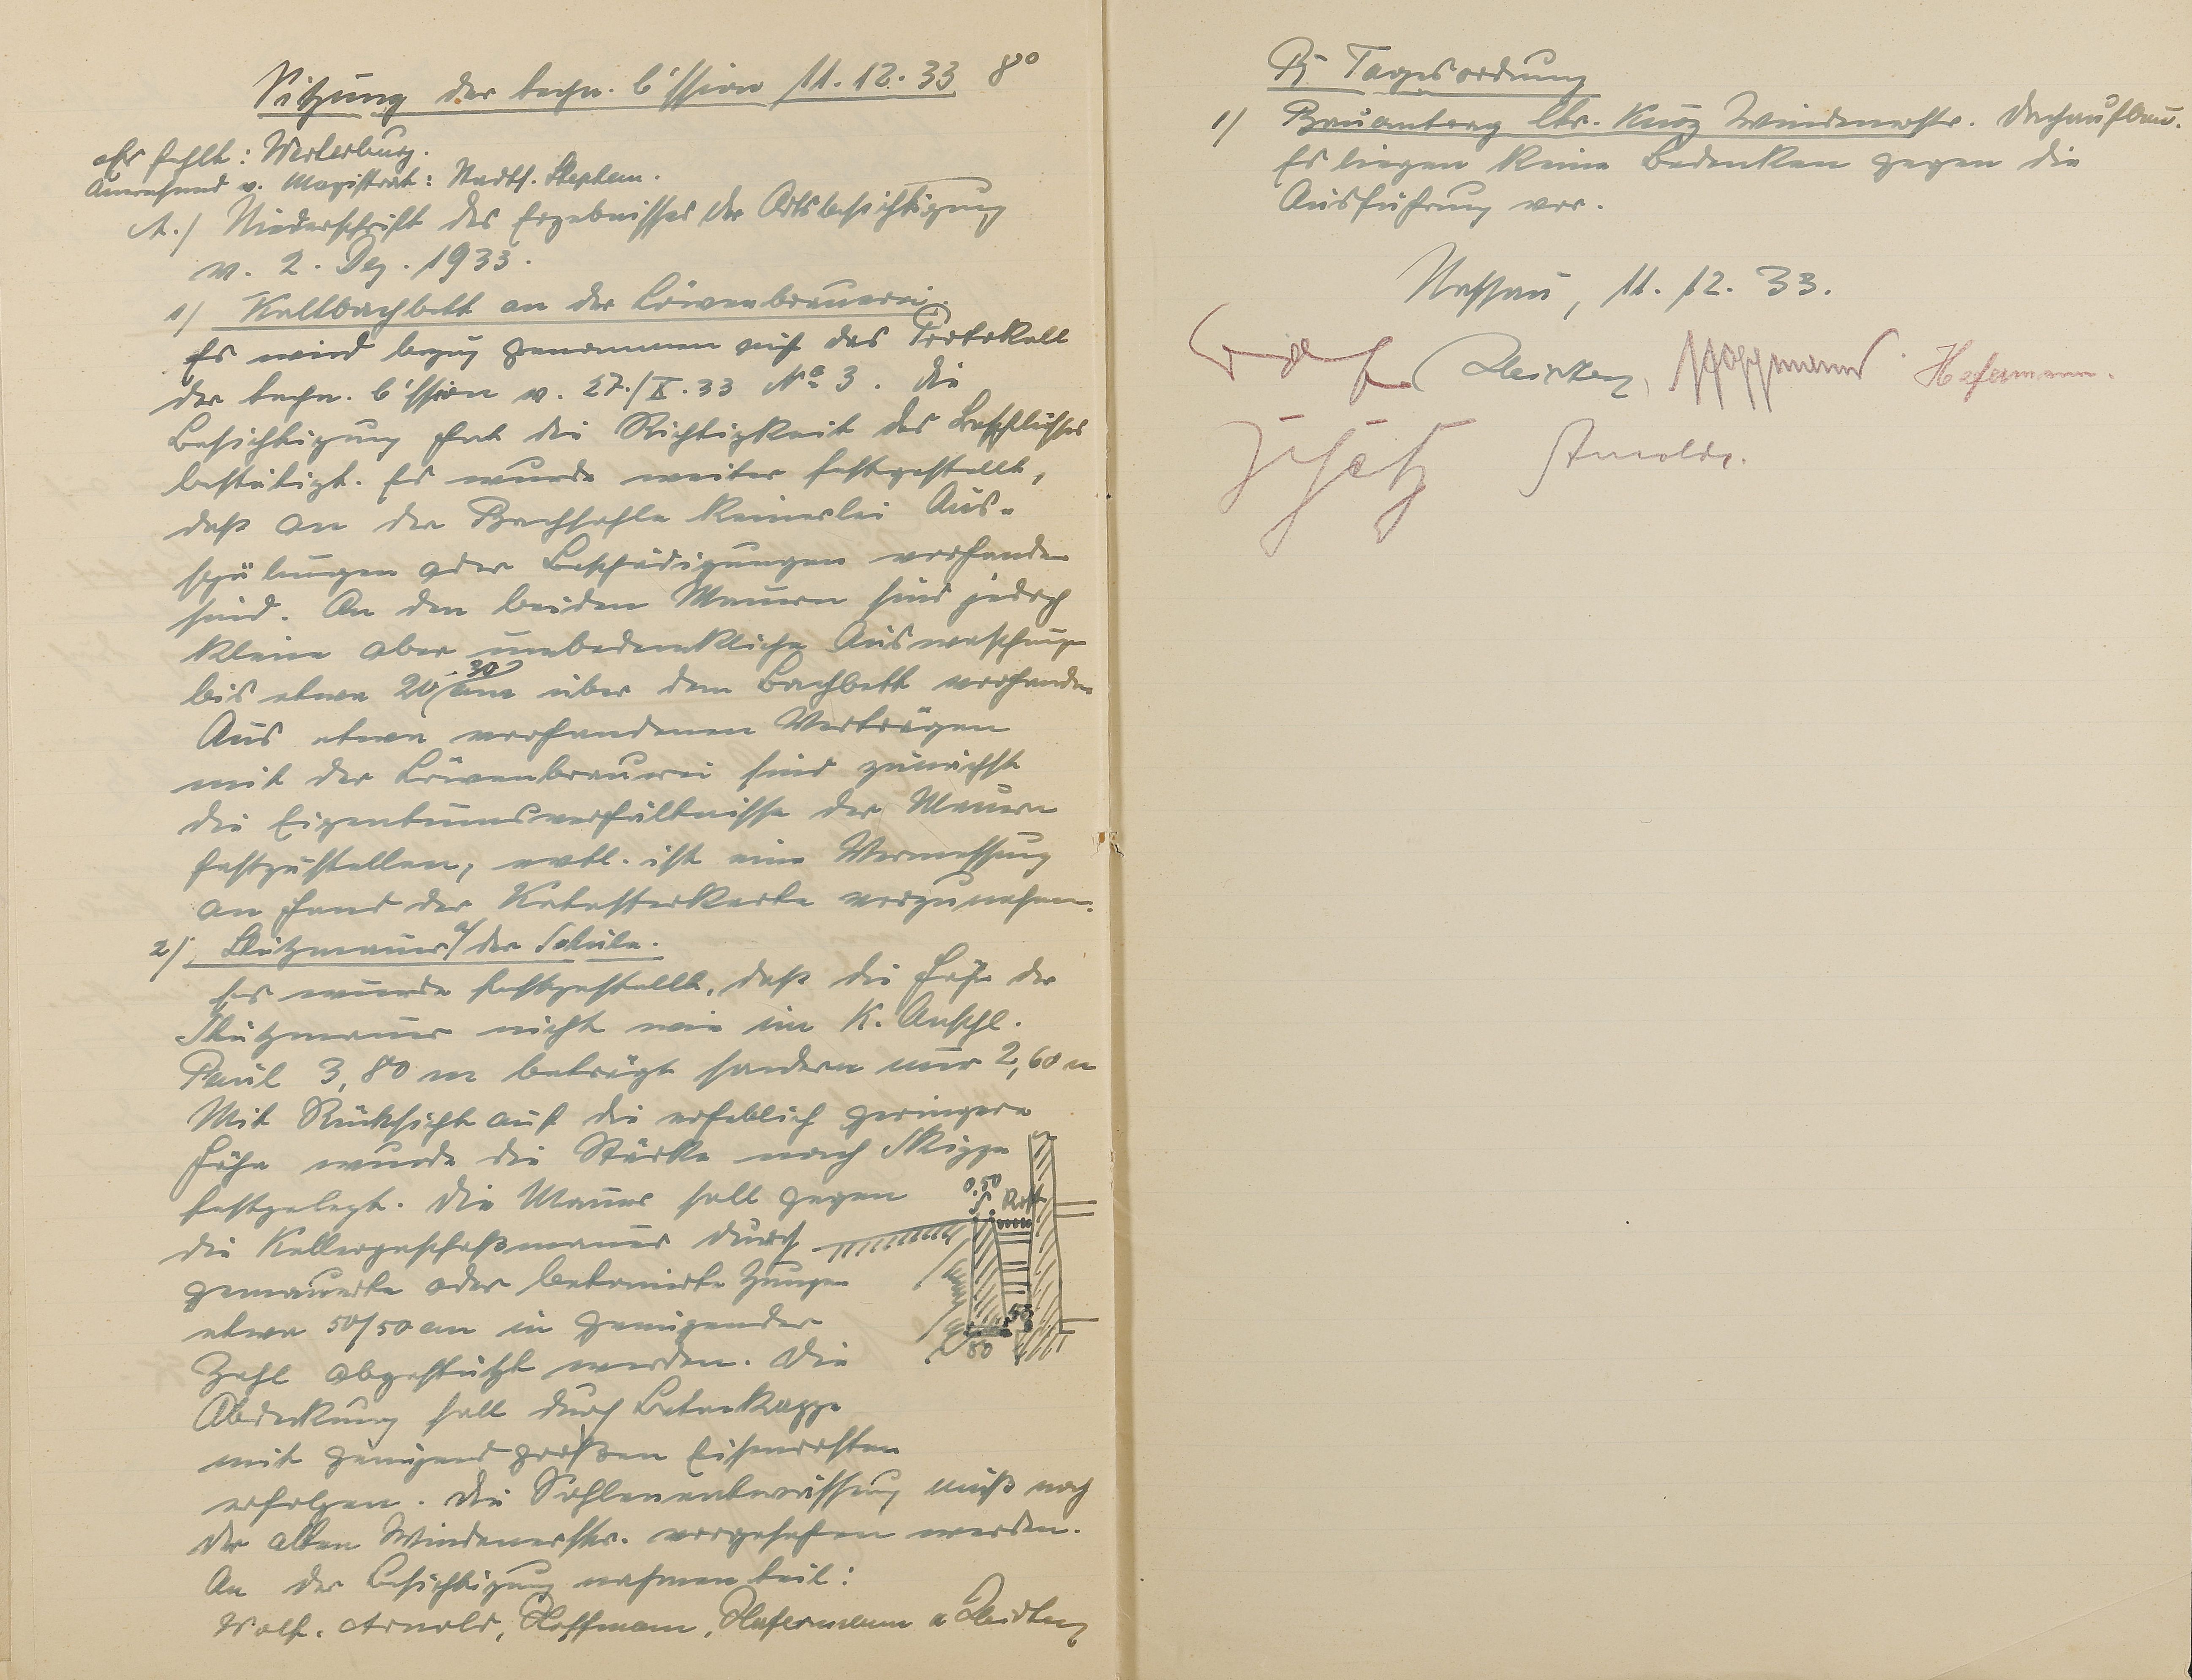 Sitzung der techn. C'ssion 11.12.33 8°
Es fehlt: Westerburg.
Anwesend v. Magistrat: Stadtf. Stephan.
A.) Niederschrift des Ergebnisses der Ortsbesichtigung
v. 2. Dez. 1933.
1) Kaltbachbett an der Löwenbrauerei.
Es wird bezug genommen auf das Protokoll
der techn. C'ssion v. 27./X.33 No 3. Die
Besichtigung hat die Richtigkeit des Beschlusses
bestätigt. Es wurde weiter festgestellt,
daß an der Bachsohle keinerlei Aus-
spülungen oder Beschädigungen vorhanden
sind. An den beiden Mauern sind jedoch
kleine aber unbedenkliche Auswaschungen
bis etwa 20-30 cm über dem Bachbett vorhanden
Aus etwa vorhandenen Verträgen
mit der Löwenbrauerei sind zunächst
die Eigentumsverhältnisse der Mauern
festzustellen, evtl. ist eine Vermessung
an Hand der Katasterkarte vorzunehmen.
2) Stützmauer a/ der Schule.
Es wurde festgestellt, daß die Höhe der
Stützmauer nicht wie im K. Anschl.
Paul 3,80 m beträgt sondern nur 2,60 m
Mit Rücksicht auf die erheblich geringere
Höhe wurde die Stärke nach Skizze
festgelegt. Die Mauer soll gegen
0.50 Rost
die Kellergeschoßmauer durch
gemauerte oder betonierte Zungen
etwa 50/50 cm in genügender
53
80
Zahl abgestützt werden. Die
Abdeckung soll durch Betonkappe
mit genügend großen Eisenrosten
erfolgen. Die Sohlenentwässerung muß nach
der alten Windenerstr. vorgesehen werden.
An der Besichtigung nahmen teil:
Wolf. Arnold, Hoffmann, Hafermann u
B Tagesordnung
1) Bauantrag Chr. Kurz Windenerstr. Dachaufbau.
Es liegen keine Bedenken gegen die
Ausführung vor.
Nassau, 11.12.33.
Hoffmann Hafermann.
Schatz Arnold.